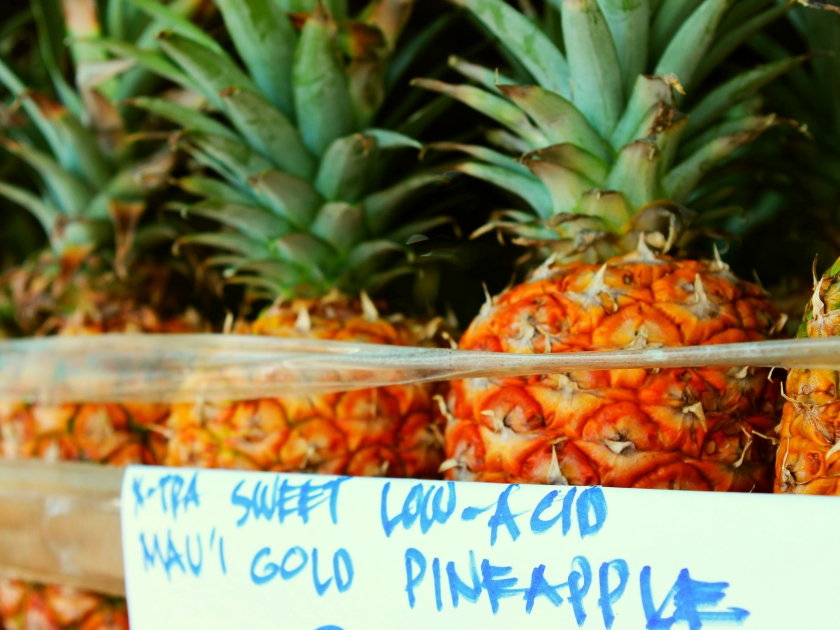 X-TRA SWEET LOW-ACID
MAU'I GOLD PINEAPPLE